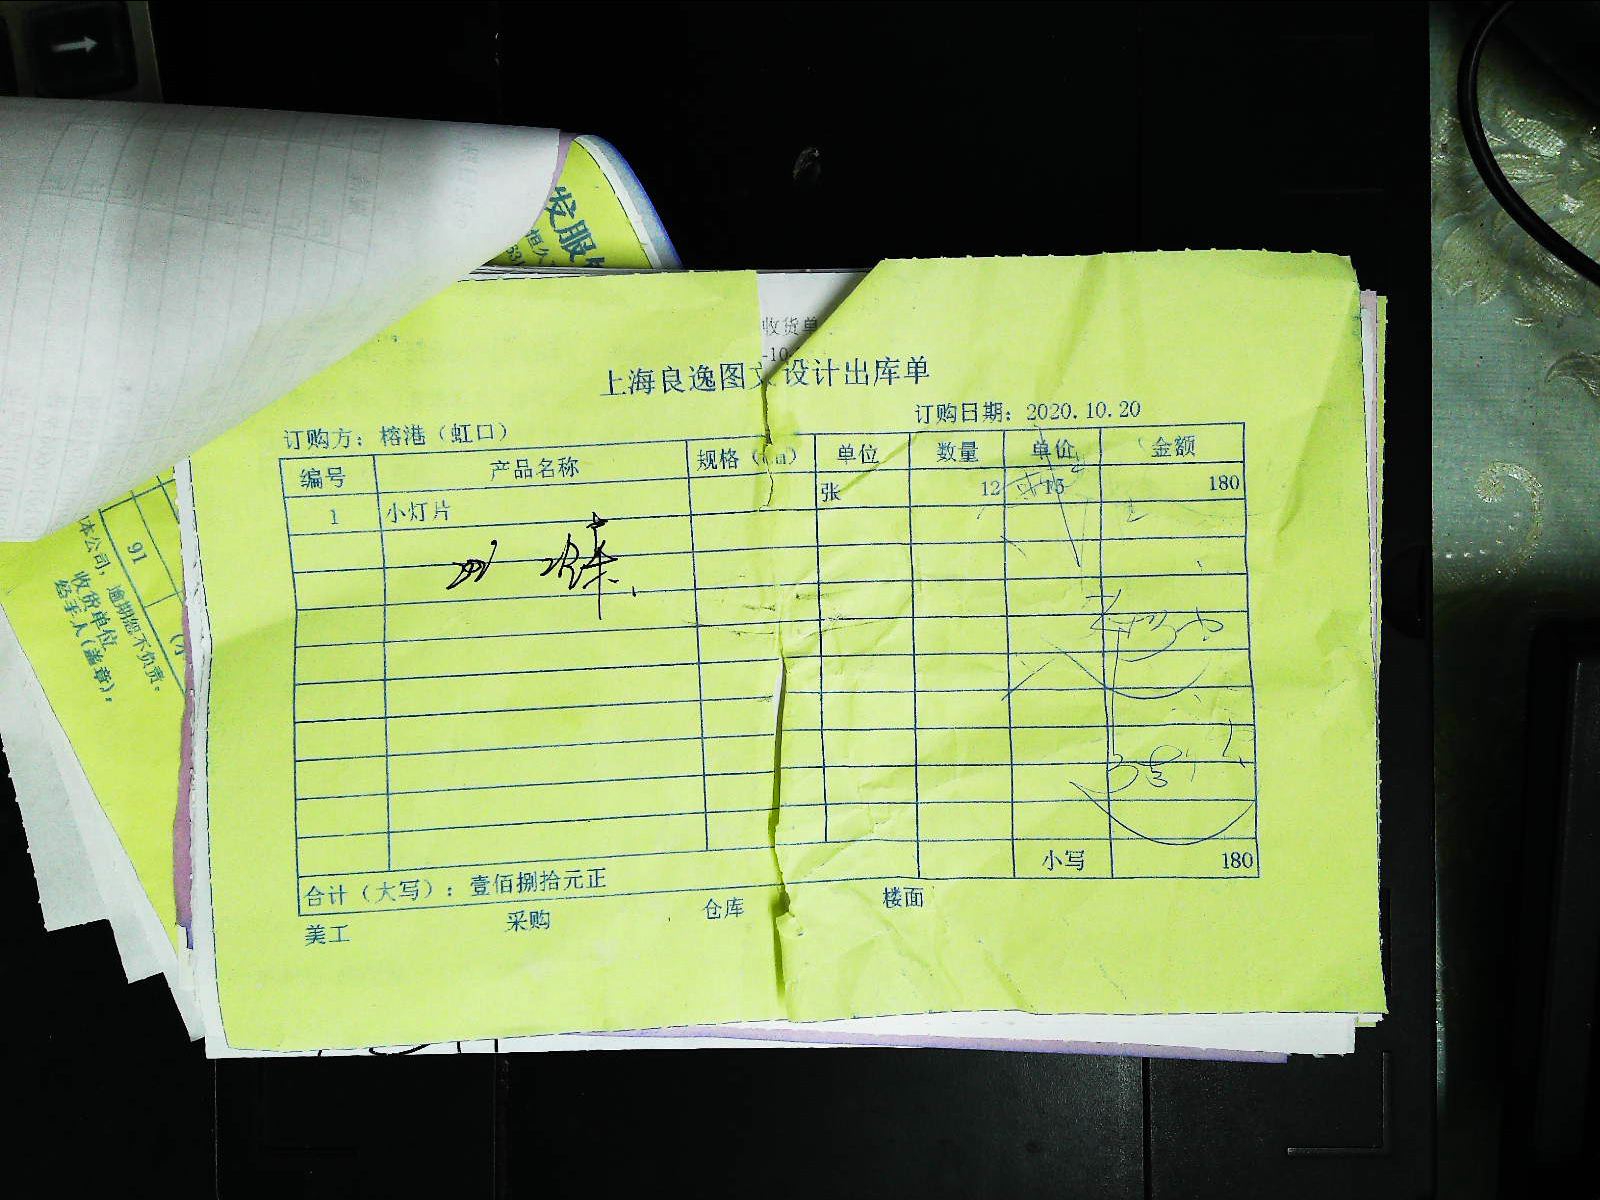 发服
恒久
收货单
-10-
上海良逸图文设计出库单
订购方：榕港（虹口） 订购日期：2020.10.20
编号 产品名称 规格（ 单位 数量 单价 金额
1 小灯片 张 12 15 180
小写 180
合计（大写）：壹佰捌拾元正
美工 采购 仓库 楼面
91
本公司，逾期恕不负责。
收货单位
经手人（盖章）：